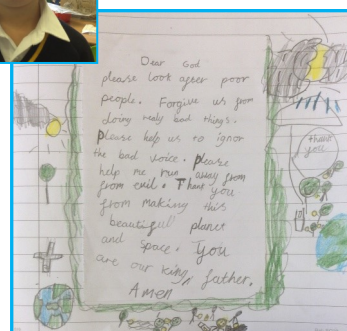 Dear God
please look after poor
people. Forgive us from
doing really bad things.
please help us to ignor
the bad voice. please
help me run away from
from evil. Thank you
from making this
beautiful planet
and space. You
are our king, father.
Amen
thank
you